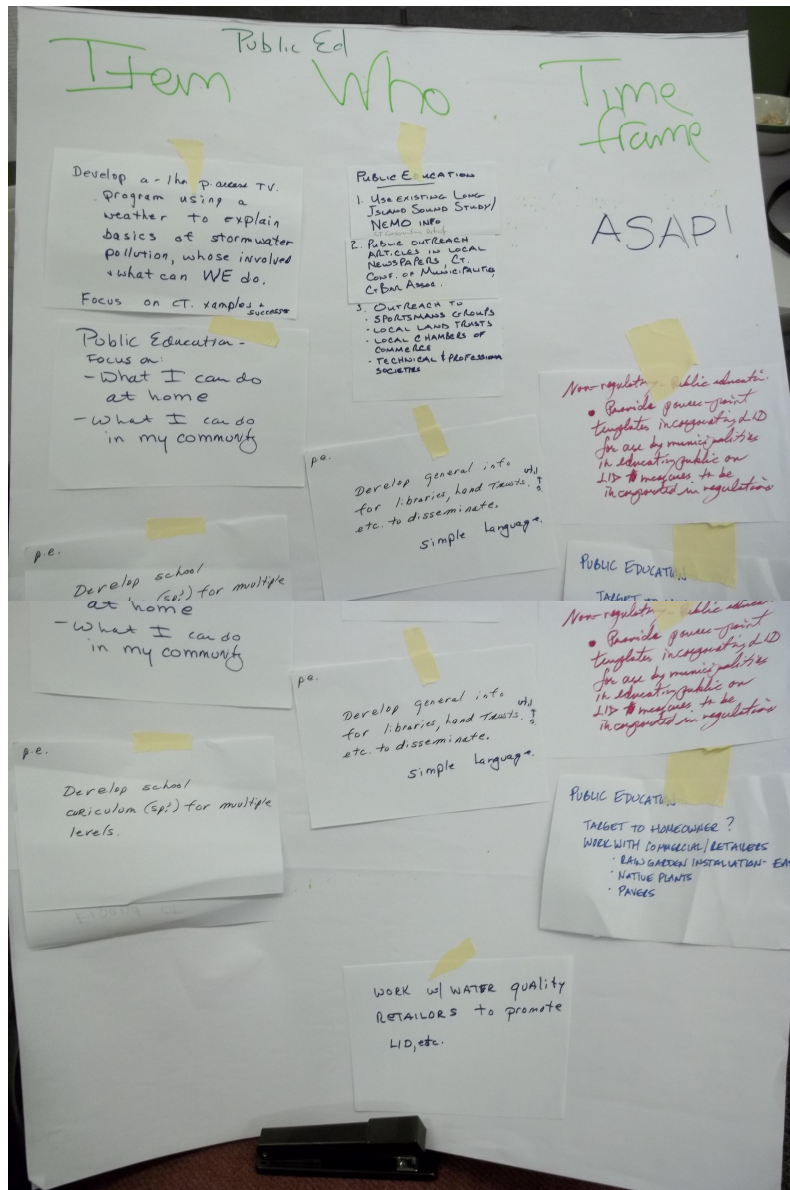 Public Ed
Item Who Time
frame
Develop a - 1hr p. access TV.
program using a
weather to explain
basics of stormwater
pollution, whose involved
+ what can WE do.
Focus on CT. xamples +
success
PUBLIC EDUCATION
1. USE EXISTING LONG
ISLAND SOUND STUDY/
NEMO INFO
2. PUBLIC OUTREACH
ARTICLES IN LOCAL
NEWSPAPERS, CT.
CONF. OF MUNICIPALITIES,
CT BAR ASSOC.
3. OUTREACH TO
· SPORTSMANS GROUPS
· LOCAL LAND TRUSTS
· LOCAL CHAMBERS OF
COMMERCE
· TECHNICAL & PROFESSIONAL
SOCIETIES
ASAP!
Public Education -
Focus on:
- What I can do
at home
- What I can do
in my community
Non-regulatory - Public educatio
• Provide power-point
templates incorporating LID
for use by municipalities
in educating public on
LID measures to be
incorporated in regulations
p.e.
Develop general info
for libraries, Land Trusts.
etc. to disseminate.
simple language.
p.e.
Develop school
(sp?) for multiple
PUBLIC EDUCATION
at home
- What I can do
in my community
Non-regulatory - Public
• Provide power-point
templates incorporating LID
for use by municipalities
in educating public on
LID measures to be
incorporated in regulations
p.e.
Develop general info
for libraries, Land Trusts.
etc. to disseminate.
simple language.
p.e.
Develop school
curiculum (sp?) for multiple
levels.
PUBLIC EDUCATION
TARGET TO HOMEOWNER ?
WORK WITH COMMERCIAL/RETAILERS
· RAIN GARDEN INSTALLATION - EA
· NATIVE PLANTS
· PAVERS
WORK w/ WATER quality
RETAILORS to promote
LID, etc.